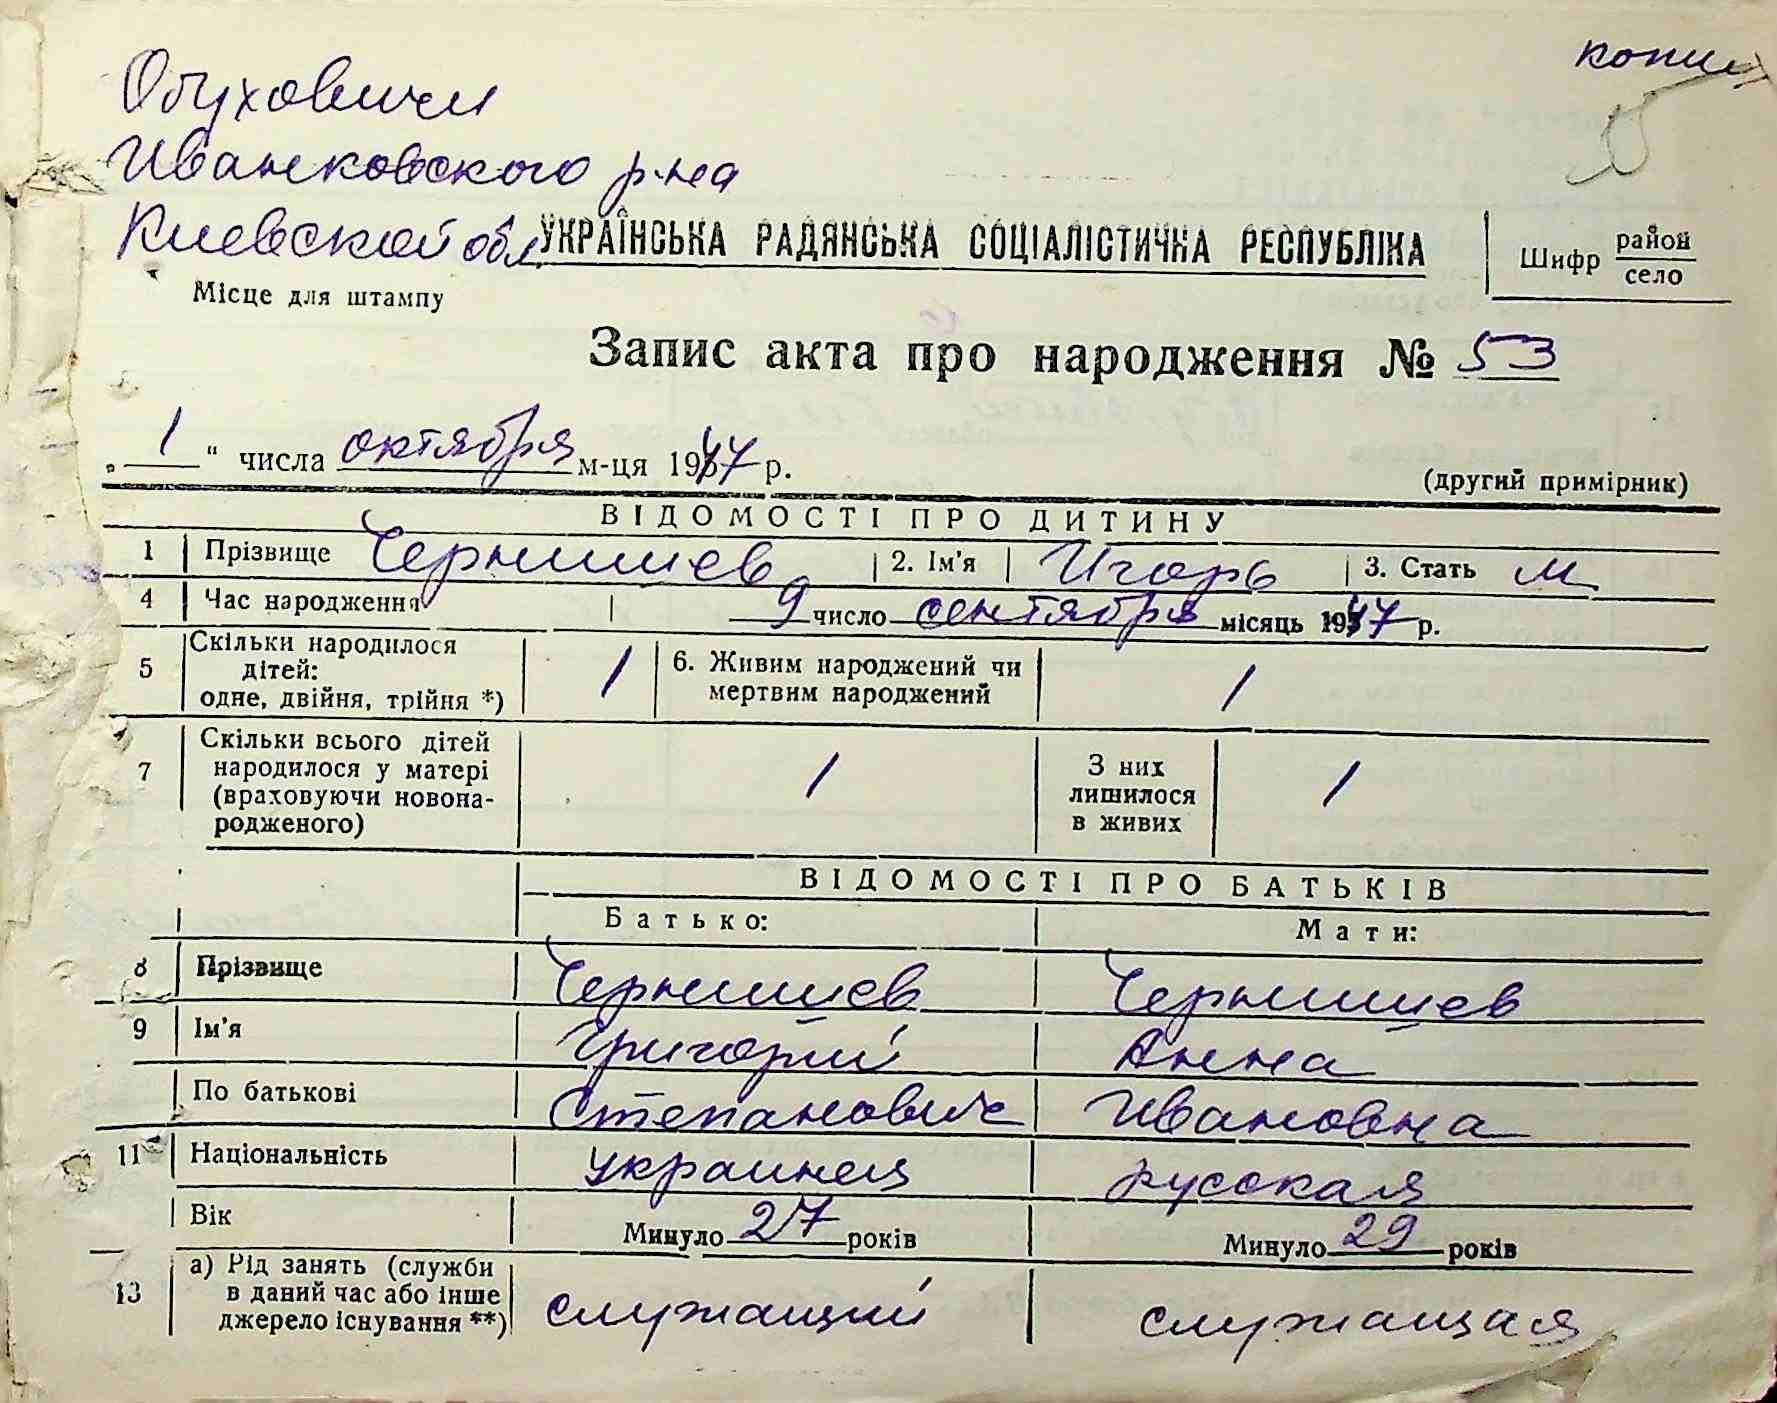 копия
Обуховичи
Иванковского р-на
Киевской обл.
УКРАЇНСЬКА РАДЯНСЬКА СОЦІАЛІСТИЧНА РЕСПУБЛІКА
Шифр район село
Місце для штампу
Запис акта про народження № 53
„ 1 “ числа октября м-ця 1947 р.
(другий примірник)
ВІДОМОСТІ ПРО ДИТИНУ
1 Прізвище Чернишев 2. Ім'я Игорь 3. Стать м
4 Час народження 9 число сентября місяць 1947 р.
5 Скільки народилося дітей: одне, двійня, трійня *) 1 6. Живим народжений чи мертвим народжений 1
7 Скільки всього дітей народилося у матері (враховуючи новонародженого) 1 З них лишилося в живих 1
ВІДОМОСТІ ПРО БАТЬКІВ
Батько: Мати:
8 Прізвище Чернишев Чернишев
9 Ім'я Григорий Анна
По батькові Степанович Ивановна
11 Національність украинец русская
Вік Минуло 27 років Минуло 29 років
13 а) Рід занять (служби в даний час або інше джерело існування **) служащий служащая